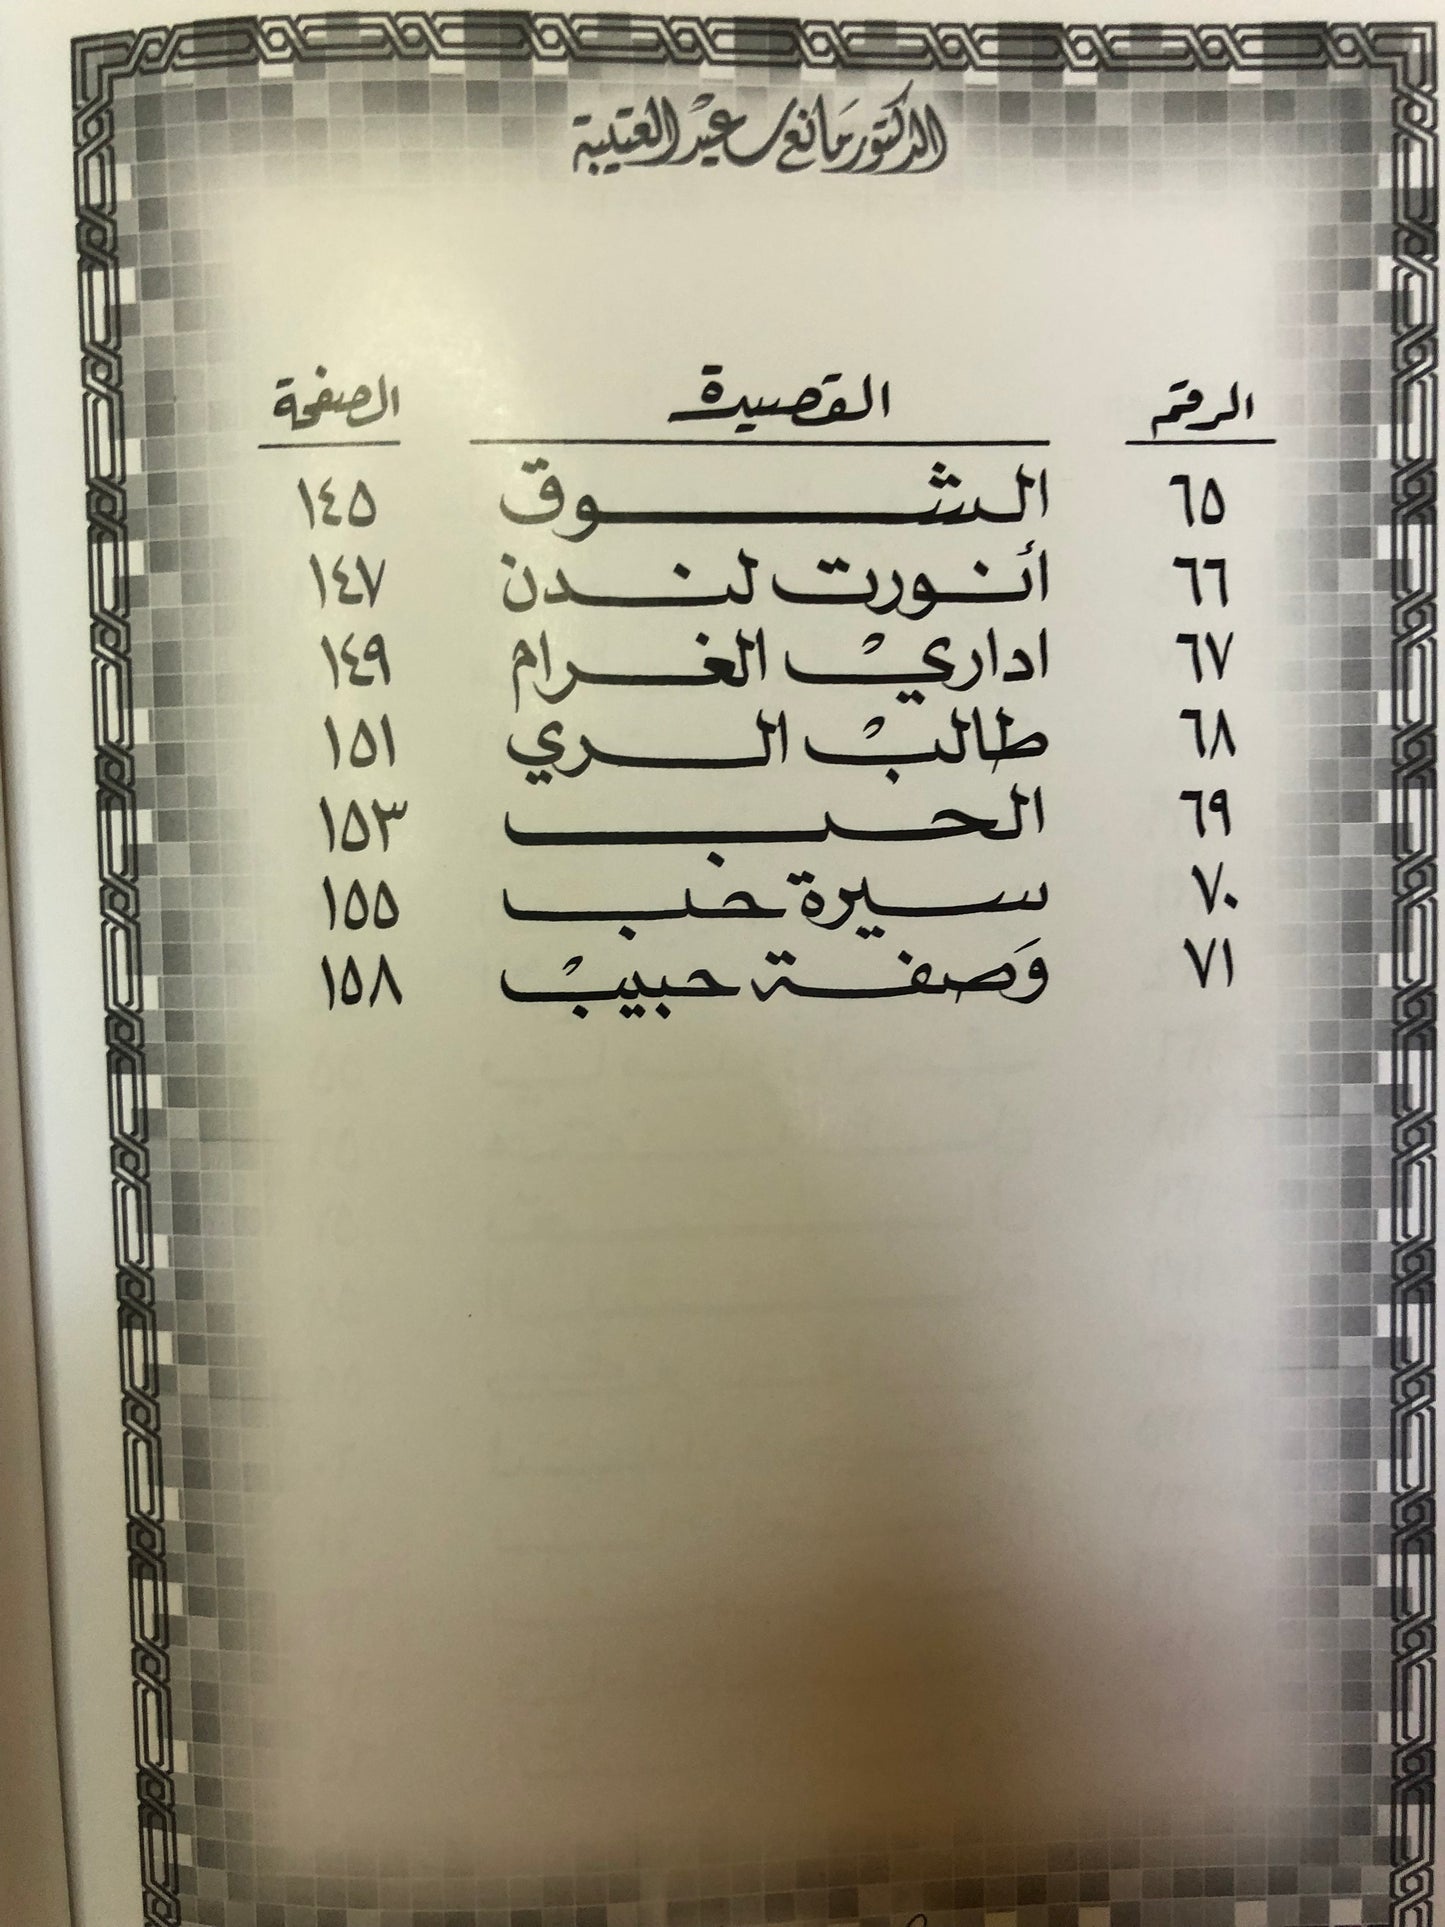 الدكتور مانع سعيد العتيبة
الرقم القصيدة الصفحة
٦٥ الشوق ١٤٥
٦٦ أنورت لندن ١٤٧
٦٧ اداريْ الغرام ١٤٩
٦٨ طالبْ الري ١٥١
٦٩ الحب ١٥٣
٧٠ سيرة حب ١٥٥
٧١ وَصفة حبيبْ ١٥٨